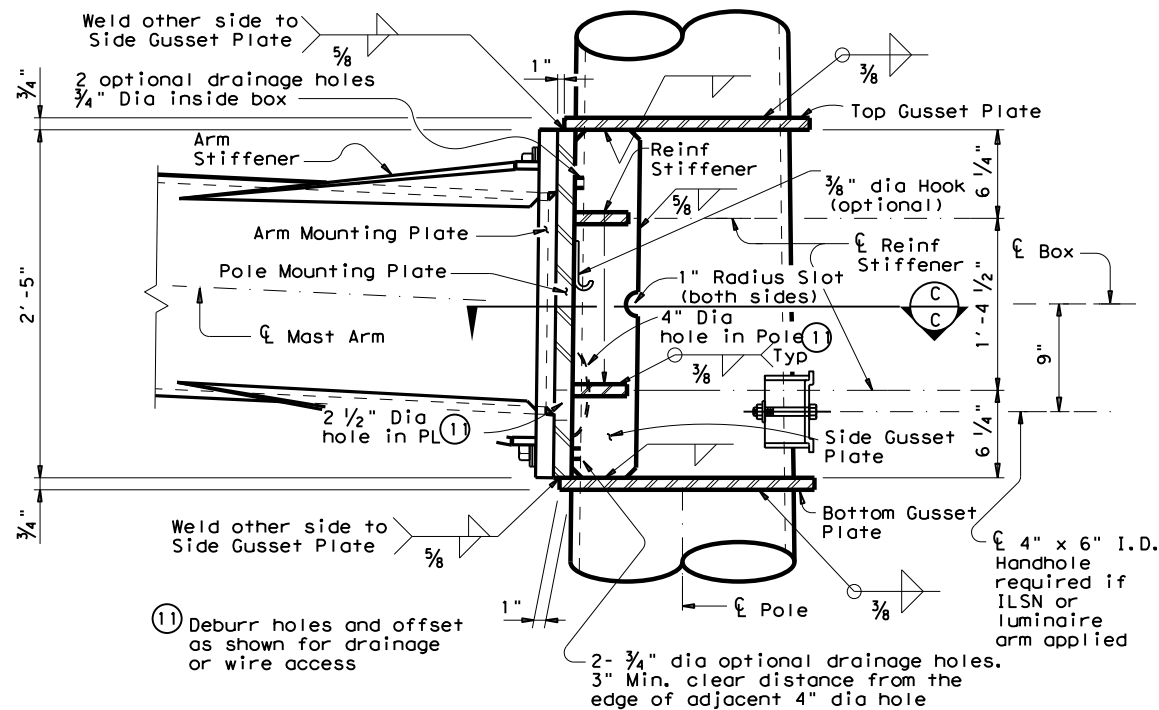 Weld other side to
Side Gusset Plate
5/8
1"
3/8
3/4"
2 optional drainage holes
3/4" Dia inside box
Top Gusset Plate
Arm
Stiffener
Reinf
Stiffener
6 1/4"
3/8" dia Hook
(optional)
5/8
Arm Mounting Plate
℄ Reinf
Stiffener
℄ Box
Pole Mounting Plate
1" Radius Slot
(both sides)
C
C
2'-5"
1'-4 1/2"
℄ Mast Arm
4" Dia
hole in Pole 11
Typ
3/8
9"
2 1/2" Dia
hole in PL 11
Side Gusset
Plate
6 1/4"
3/4"
Weld other side to
Side Gusset Plate
5/8
Bottom Gusset
Plate
℄ 4" x 6" I.D.
Handhole
required if
ILSN or
luminaire
arm applied
1"
℄ Pole
3/8
11 Deburr holes and offset
as shown for drainage
or wire access
2- 3/4" dia optional drainage holes.
3" Min. clear distance from the
edge of adjacent 4" dia hole